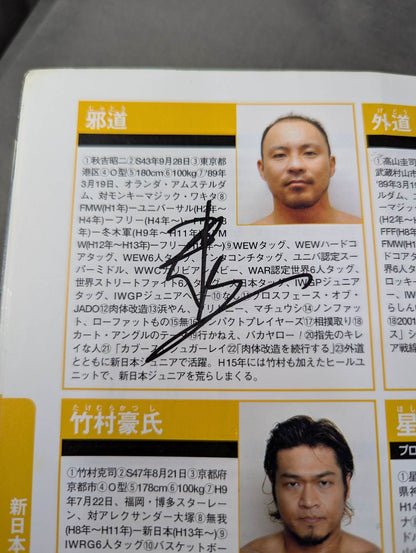 じゃどう
邪道
①秋吉昭二②S43年9月28日③東京都
港区④O型⑤180cm⑥100kg⑦'89年
3月19日、オランダ・アムステルダ
ム、対モンキーマジック・ワキタ⑧
FMW(H1年)ーユニバーサル(H2年〜
H4年)ーフリー(H4年〜
年)
ー冬木軍(H9年〜H11年)
MW(H12年〜H13年)ーフリー
⑨WEWタッグ、WEWハードコ
アタッグ、WEW6人タッグ
コンチタッグ、ユニバ認定スー
パーミドル、WWC
タッグ、WAR認定世界6人タッグ、
世界ストリートファイト6人タッグ
タッグ、IWGPジュニア
タッグ、IWGPジュニア
⑩な
⑪クロスフェース・オブ・
JADO⑫肉体改造⑬浜やん、
ニー、マチュウ⑭ノンファッ
ト、ローファットもの⑮無⑯
パクトプレイヤーズ⑰相撲取り⑱
カート・アングルのテー
⑲行かねえ、バカヤロー!⑳指先のキレ
イな人㉑「カブース
シュガーレイ㉒「肉体改造を続行する」㉓外道
とともに新日本ジュニアで活躍。H15年には竹村も加えたヒールユ
ニットで、新日本ジュニアを荒らしまくる。
げどう
外道
①高山圭司
武蔵村山市
FFF(H8年
たけむらかつし
竹村豪氏
①竹村克司②S47年8月21日③京都府
京都市④O型⑤178cm⑥100kg⑦H9
年7月22日、福岡・博多スターレー
ン、対アレクサンダー大塚⑧無我
(H8年〜H11年)ー新日本(H13年〜)⑨
IWRG6人タッグ⑩バスケットボー
新日本
星
プロ